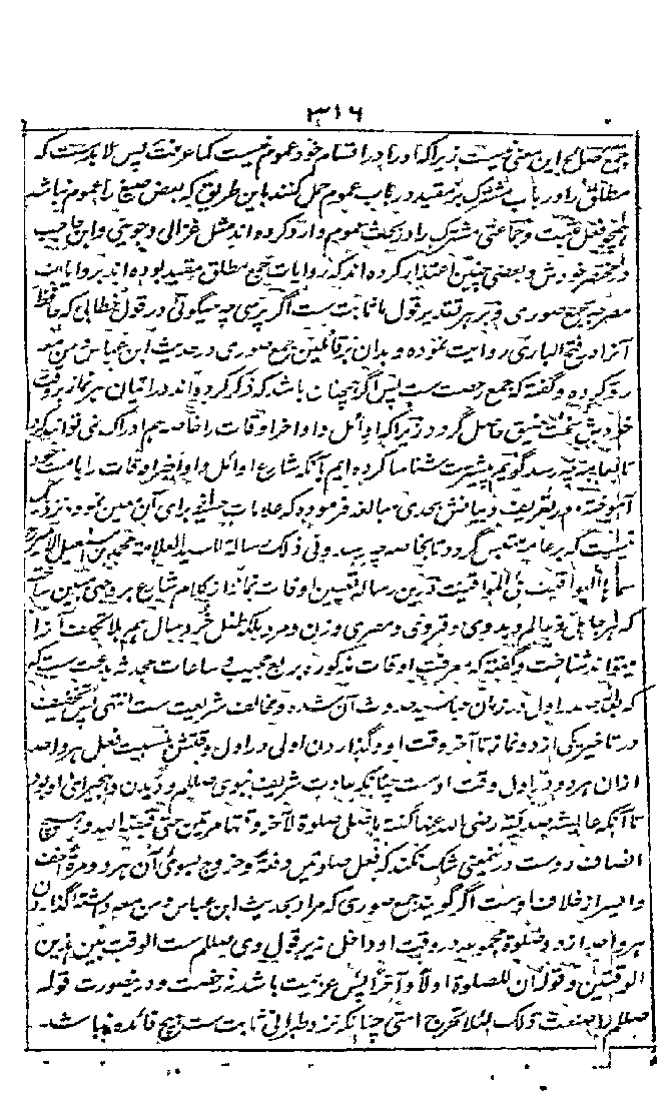 ۳۱۶
جمع صالح این معنی نیست زیراکه او را در اقسام خود عموم نیست کما عرفت پس لا بدست که
مطلق را در باب مشترک بر مقید در باب عموم حمل کنند باین طریق که بعض صیغ را عموم نباشد
همچو فعل مثبت و جماعتی مشترک را در بحث عموم وارد کرده اند مثل غزالی و جوینی و ابن حاجب
در مختصر خودش و بعضی چنین اعتذار کرده اند که روایات جمع مطلق مقید بوده اند بروایات
مصرحه بجمع صوری و بر هر تقدیر قول ما ثابت ست اگر پرسی چه میگوئی در قول خطابی که حافظ
آنرا در فتح الباری روایت نموده و بدان بر قائلین جمع صوری در حدیث ابن عباس و من معه
رد کرده و گفته که جمع رخصت ست پس اگر همچنان باشد که ذکر کرده اند در اتیان هر نماز بر وقت
خودش ضیق حاصل گردد زیراکه اوائل و اواخر اوقات را خاصه هم ادراک نمی توانند کرد
تا بعامه چه رسد گوئیم پیشتر شناسا کرده ایم بآنکه شارع اوائل و اواخر اوقات را بامت خود
آموخته و در تعریف و بیانش بحدی مبالغه فرموده که علامات حسیه برای آن معین نموده نزدیک
نیست که بر عامه ملتبس گردد تا بخاصه چه رسد وفی ذلک رسالة للسید العلامة محمد بن اسمعیل الامیر
سماها الیواقیت فی المواقیت درین رساله تعیین اوقات نماز از کلام شارع بر وجهی مبین ساخته
که هر جاهل و عالم و بدوی و قروی و مصری و زن و مرد بلکه طفل خرد سال هم بلا تکلف آنرا
میتواند شناخت و گفته که معرفت اوقات مذکوره بربع مجیب و ساعات محدثه بدعت ست که
در صدر اول در زمان حدوث آن شده و مخالف شریعت ست انتهی پس تخفیف
در تاخیر یکی از دو نماز تا آخر وقت او و گذاردن اولی در اول وقتش نسبت بفعل هر واحد
ازان هر دو در اول وقت اوست چنانکه عادت شریف نبوی صللم و دیدن و هجیرای او بود
تا آنکه عایشه صدیقه رضی الله عنها گفته ما صلی صلوة لآخر وقتها مرتین حتی قبضه الله و هیچ
انصاف دوست درین معنی شک نکند که فعل صلوتین دفعة و خروج بسوی آن هر دو مرة اخف
و ایسر از خلاف اوست اگر گویند جمع صوری که مراد بحدیث ابن عباس و من معه داشته گذاردن
هر واحد از دو صلوة مجموعه در وقت او داخل زیر قول وی صللم ست الوقت بین هذین
الوقتین و قوله ان للصلوة اولا و آخرا پس عزیمت باشد نه رخصت و درینصورت قوله
صللم صنعت ذلک لئلا تحرج امتی چنانکه نزد طبرانی ثابت ست هیچ فائده نباشد